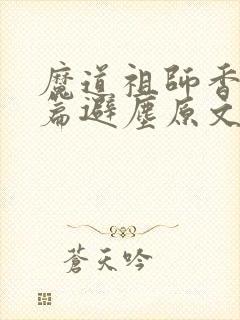 魔道祖師香
篇避塵原文
蒼天吟